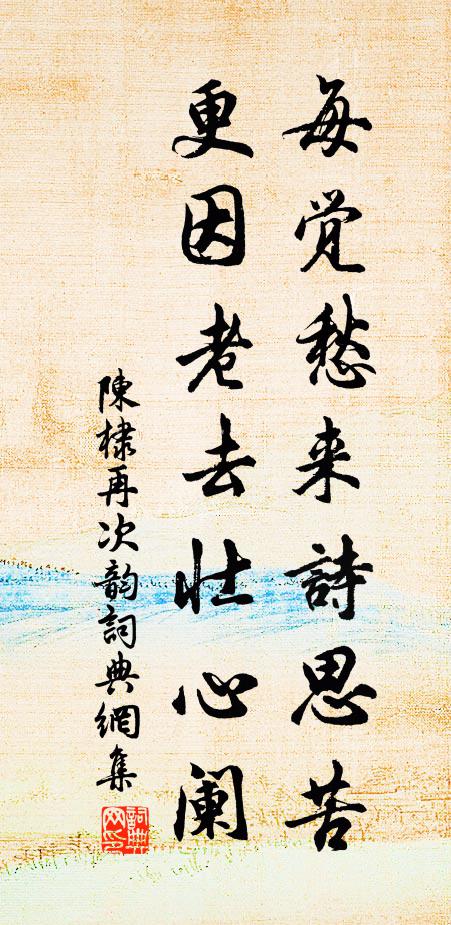 每觉愁来詩思苦
更因老去壮心阑
陳棣再次韵詞典網集
詞典网印